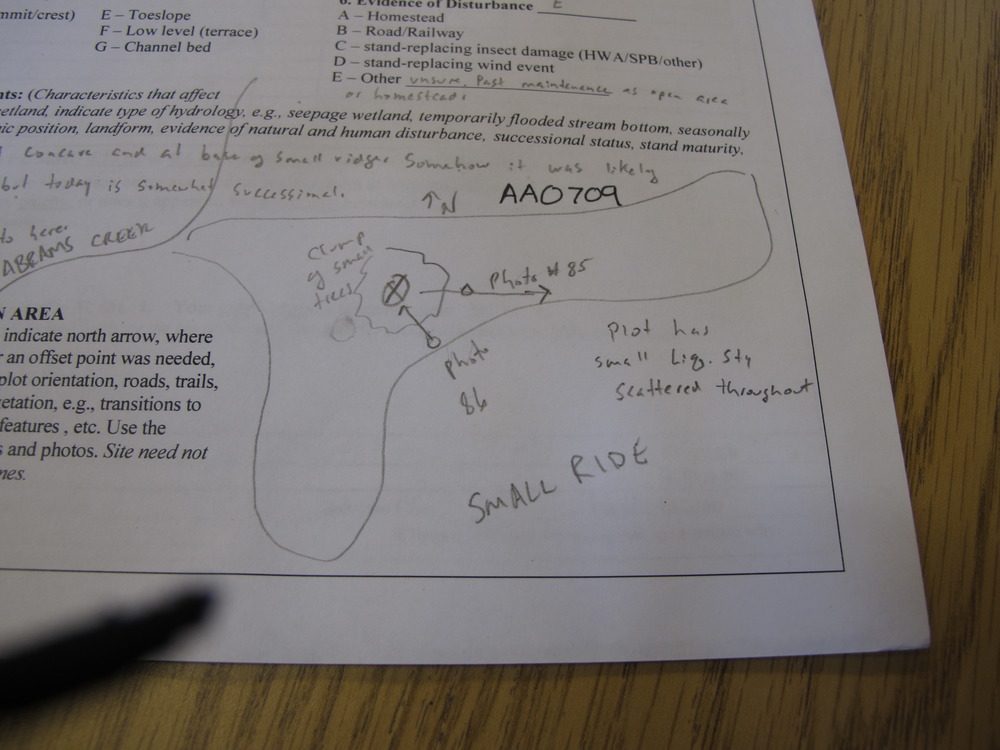 6. Evidence of Disturbance E
mmit/crest) E – Toeslope
F – Low level (terrace)
G – Channel bed
A – Homestead
B – Road/Railway
C – stand-replacing insect damage (HWA/SPB/other)
D – stand-replacing wind event
E – Other unsure. Past maintenence as open area
or homestead.
nts: (Characteristics that affect
etland, indicate type of hydrology, e.g., seepage wetland, temporarily flooded stream bottom, seasonally
ic position, landform, evidence of natural and human disturbance, successional status, stand maturity,
concave and at base of small ridge. Somehow it was likely
but today is somewhat successional.
to here.
ABRAMS CREEK
↑N AAO709
clump
of small
trees
Photo # 85
photo
86
Plot has
small Liq. Sty
scattered throughout
SMALL RIDE
N AREA
indicate north arrow, where
r an offset point was needed,
plot orientation, roads, trails,
etation, e.g., transitions to
features , etc. Use the
s and photos. Site need not
nes.